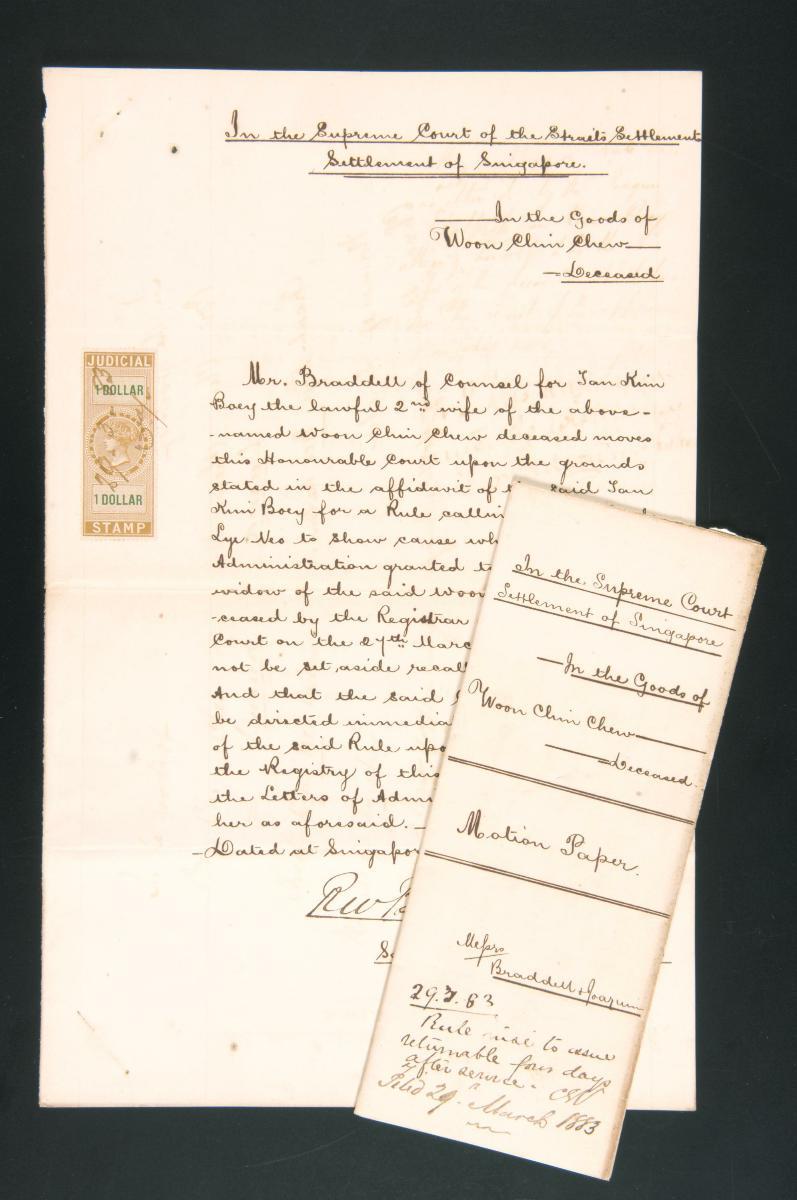 In the Supreme Court of the Straits Settlements
Settlement of Singapore.
In the Goods of
Woon Chin Chew
Deceased
JUDICIAL
1 DOLLAR
1 DOLLAR
STAMP
Mr. Braddell of Counsel for Tan Kim
Boey the lawful 2nd wife of the above-
-named Woon Chin Chew deceased moves
this Honourable Court upon the grounds
stated in the affidavit of said Tan
Kim Boey for a Rule
Lye Neo to show cause
Administration granted
widow of the said Woon
-ceased by the Registrar
Court on the 27th
not be set aside
And that the said
be directed
of the said Rule
the Registry of this
the Letters of
her as aforesaid.
Dated at
In the Supreme Court
Settlement of Singapore
In the Goods of
Woon Chin Chew
Deceased.
Motion Paper.
Messrs
Braddell & Joaquim
29.3.83
Rule nisi to issue
returnable four days
after service.
Filed 29th March 1883